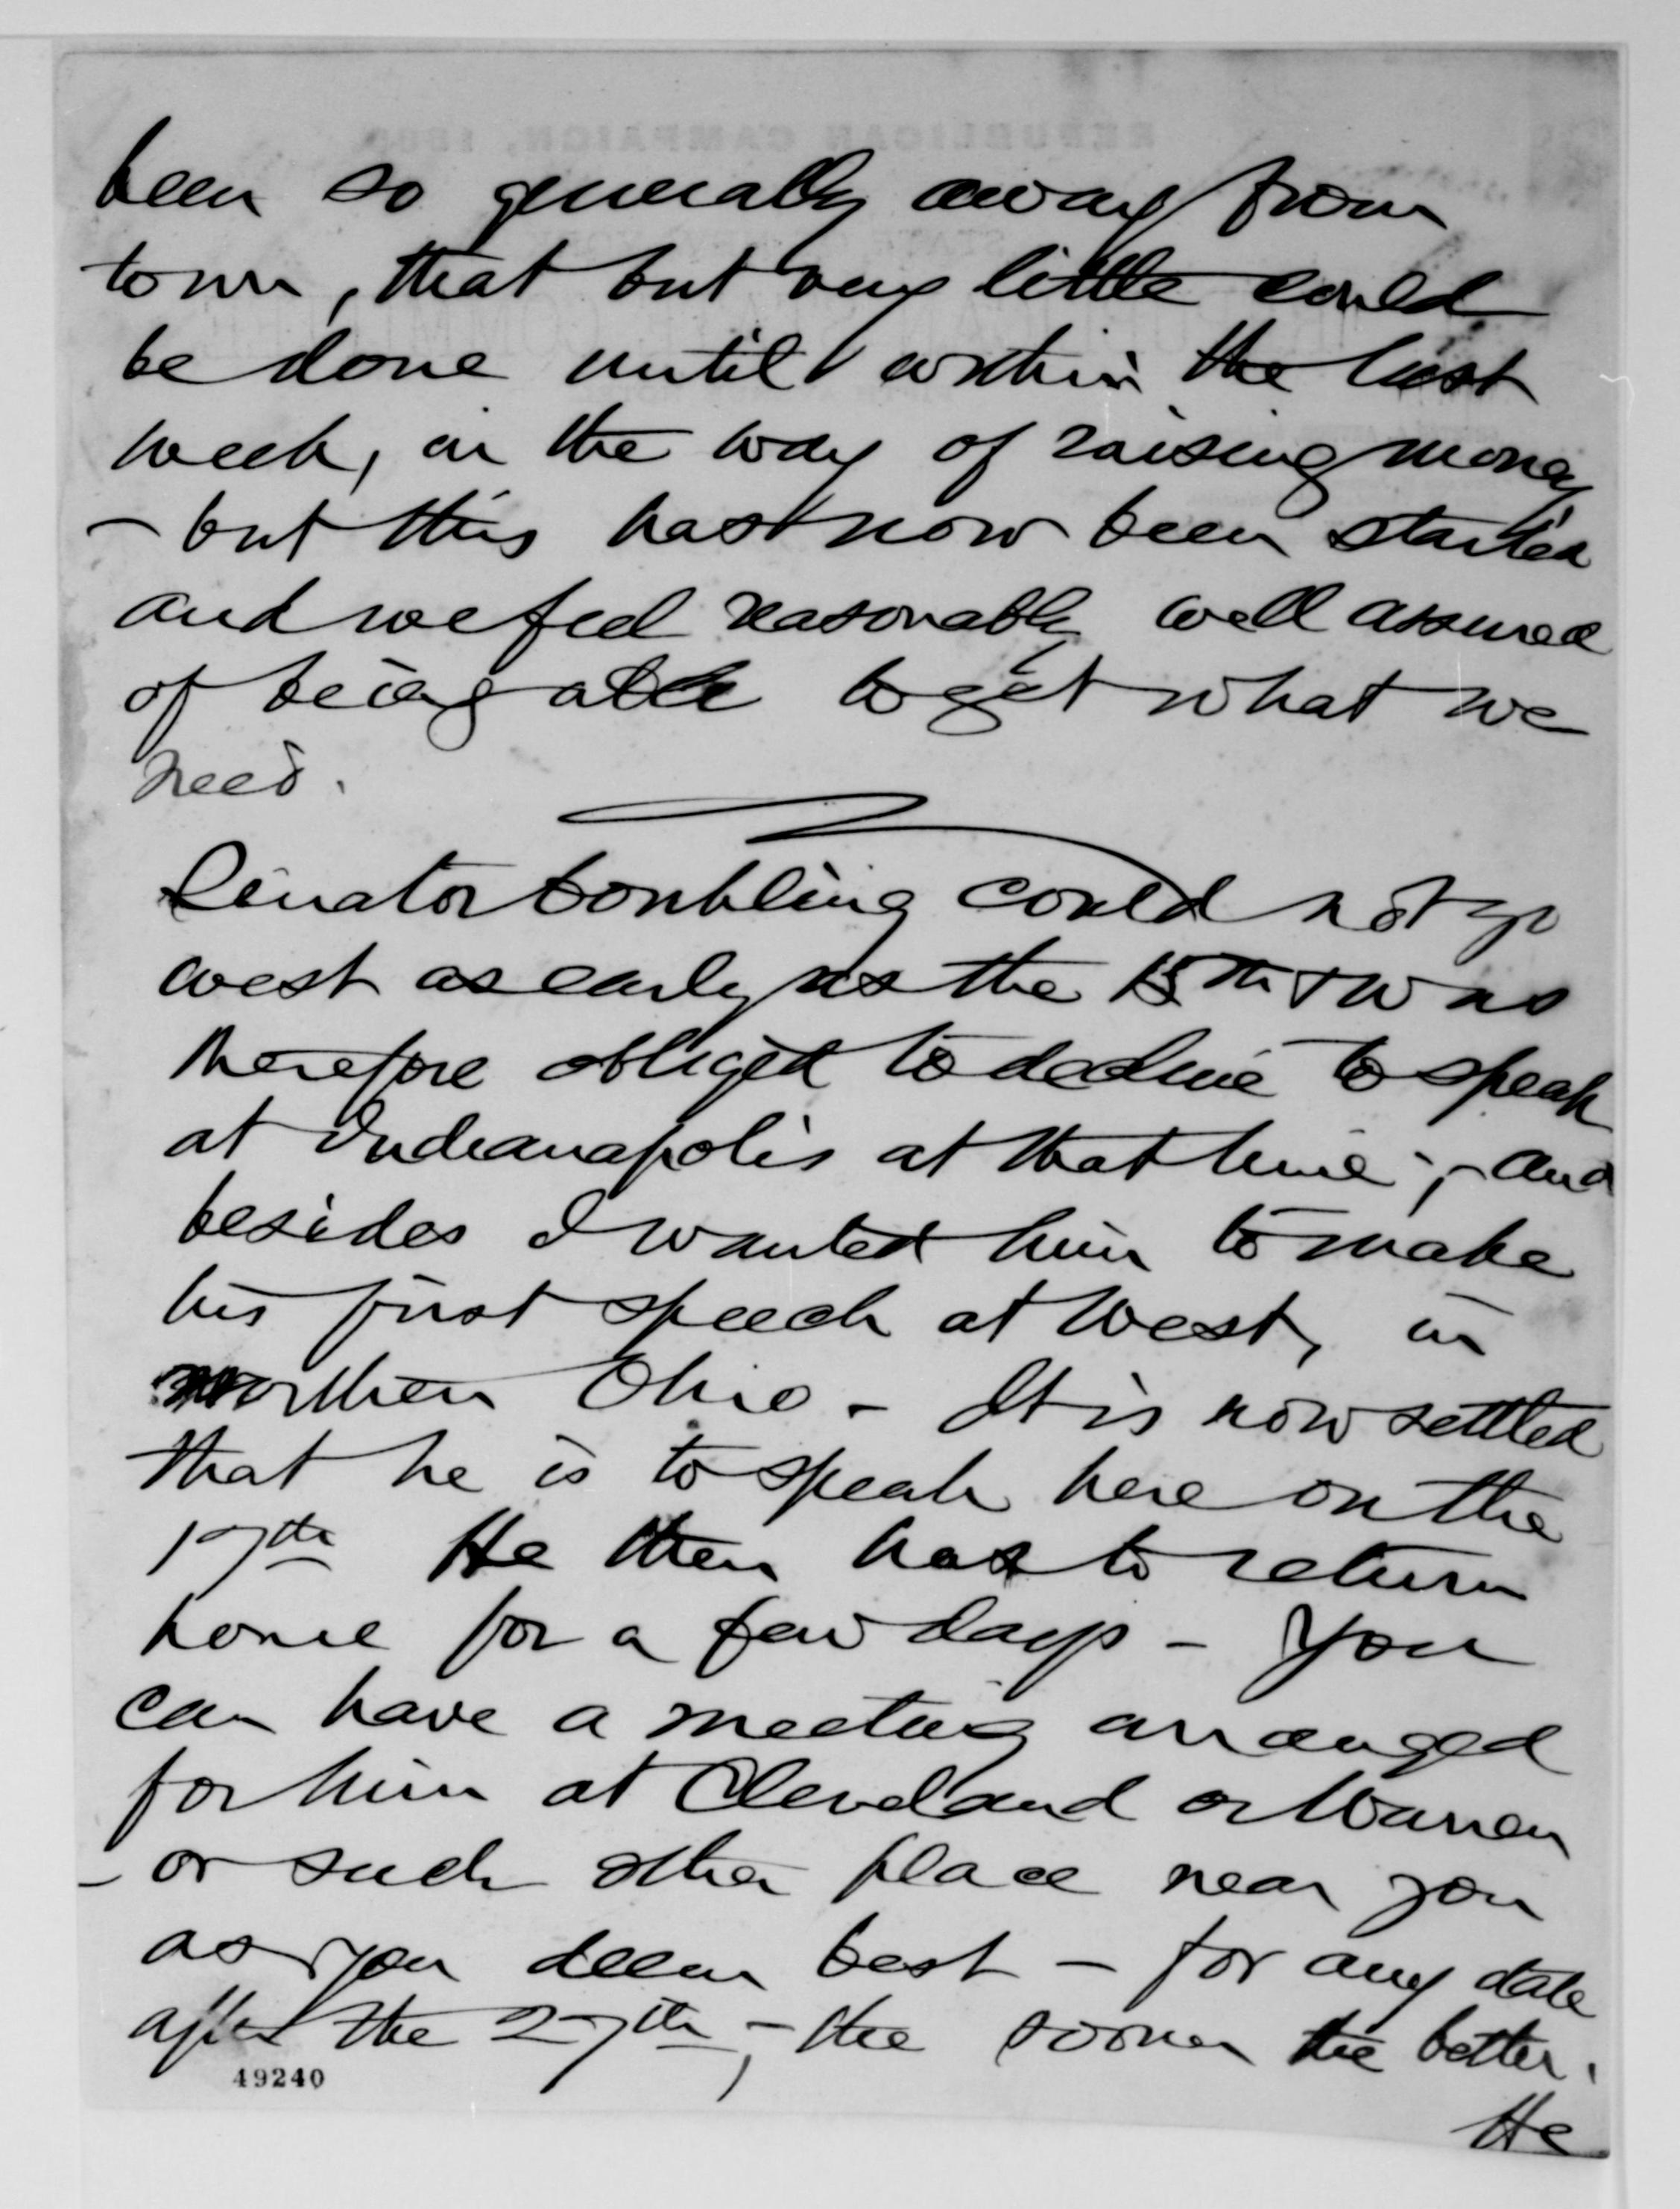 been so generally away from
town, that but very little could
be done until within the last
week, in the way of raising money
- but this has now been started
and we feel reasonably well assured
of being able to get what we
need.
Senator Conkling could not go
west as early as the 15th & was
therefore obliged to decline to speak
at Indianapolis at that time; - and
besides I wanted him to make
his first speech at West, in
northern Ohio - It is now settled
that he is to speak here on the
17th He then has to return
home for a few days - You
can have a meeting arranged
for him at Cleveland or Warren
- or such other place near you
as you deem best - for any date
after the 27th, - the sooner the better.
49240
He